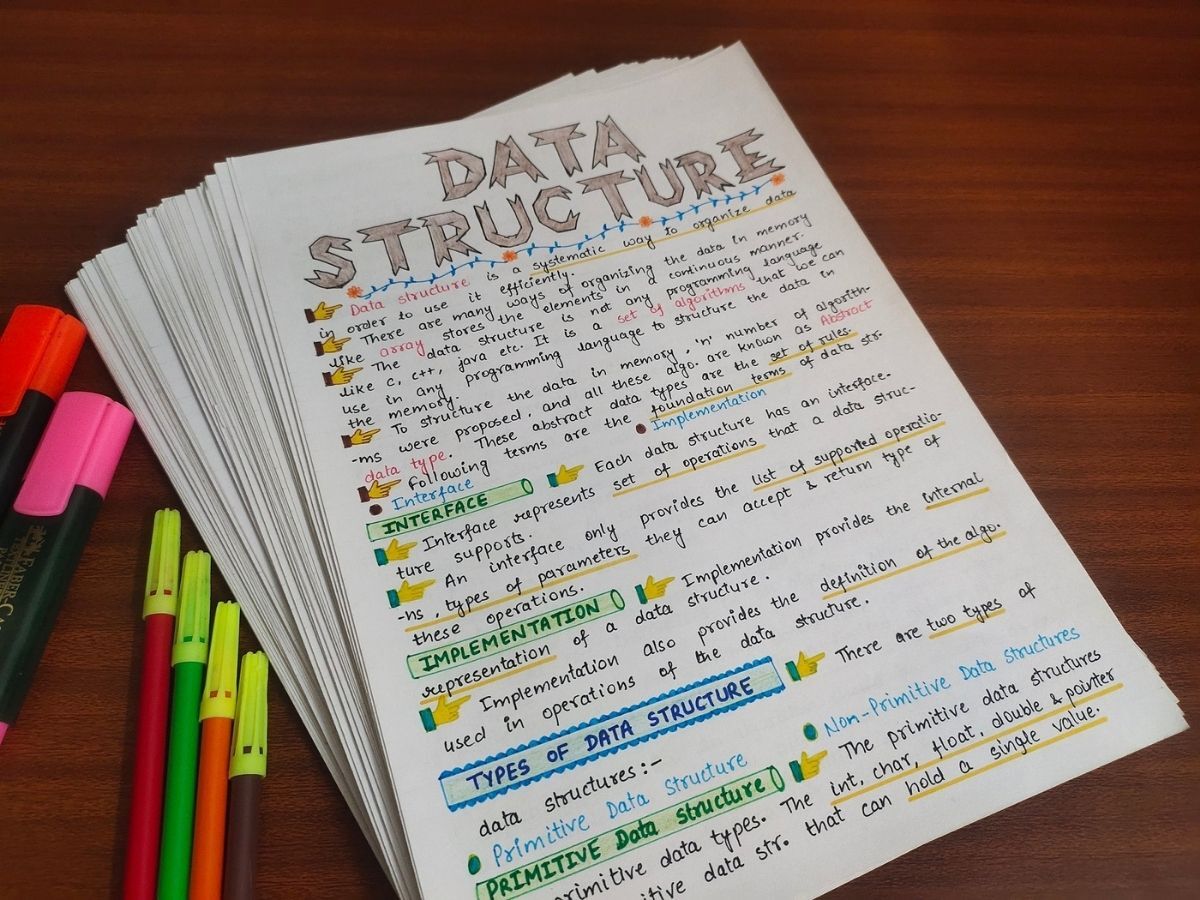 DATA
STRUCTURE
Data structure is a systematic way to organize data
in order to use it efficiently.
There are many ways of organizing the data in memory
like array stores the elements in a continuous manner.
The data structure is not any programming language
like C, C++, java etc. It is a set of algorithms that we can
use in any programming language to structure the data in
the memory.
To structure the data in memory, 'n' number of algorith-
-ms were proposed, and all these algo. are known as Abstract
data type. These abstract data types are the set of rules.
Following terms are the foundation terms of data str.
Interface
Implementation
INTERFACE
Each data structure has an interface.
Interface represents set of operations that a data struc-
ture supports.
An interface only provides the list of supported operatio-
-ns, types of parameters they can accept & return type of
these operations.
IMPLEMENTATION
Implementation provides the internal
representation of a data structure.
Implementation also provides the definition of the algo.
used in operations of the data structure.
TYPES OF DATA STRUCTURE
There are two types of
data structures:-
Primitive Data structure
Non-Primitive Data structures
PRIMITIVE Data structure
The primitive data structures
primitive data types. The int, char, float, double & pointer
data str. that can hold a single value.